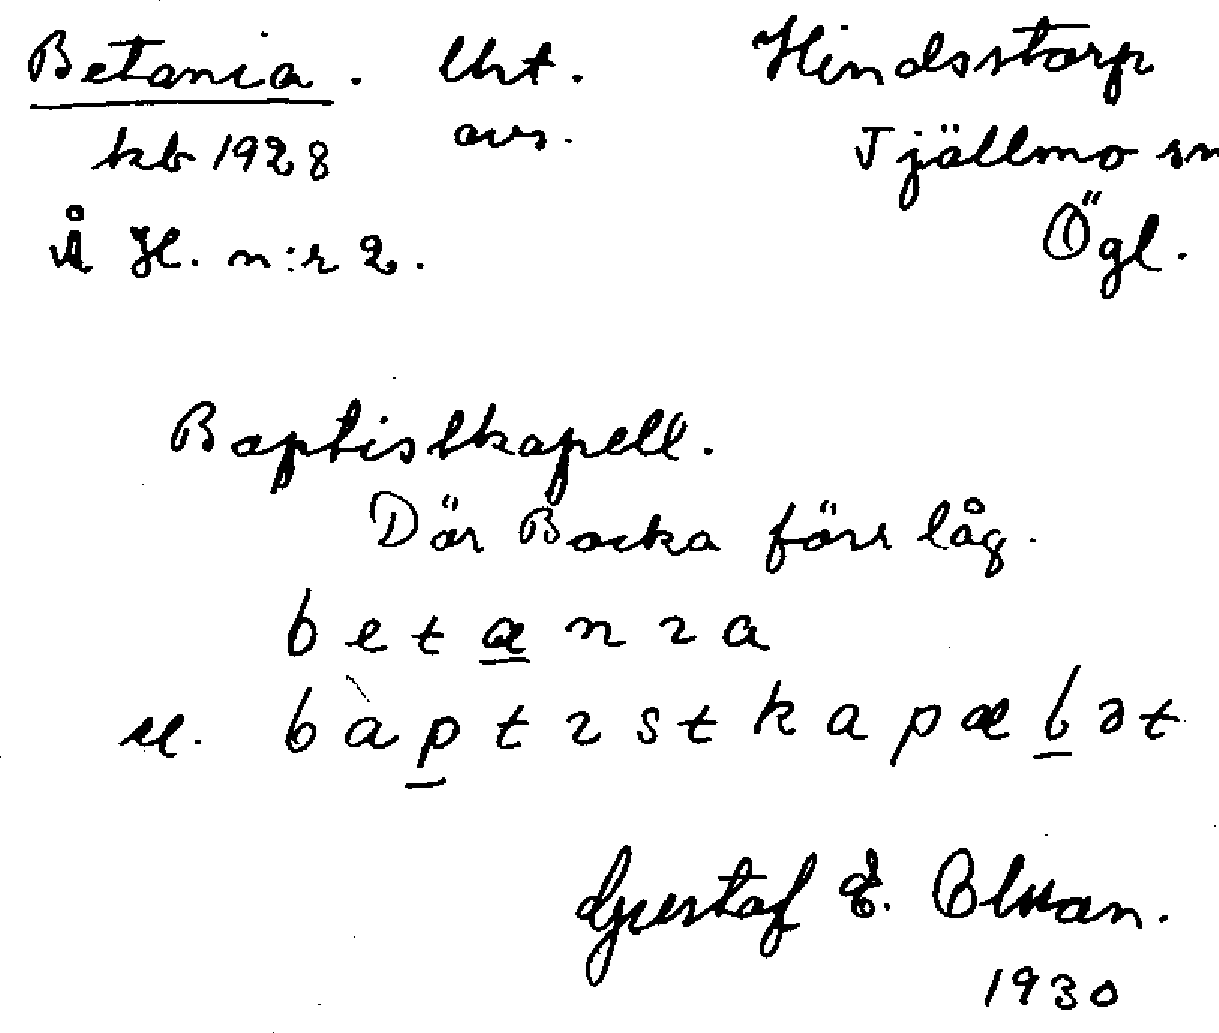 Betania. Urt. Hindsstorp
kb 1928 avs. Tjällmo sn
Å Hl. n:r 2. Ögl.
Baptistkapell.
Där Backa förr låg.
b e t a n ı a
b à p t ı s t k a p æ l ə t
Gustaf E. Blman.
1930